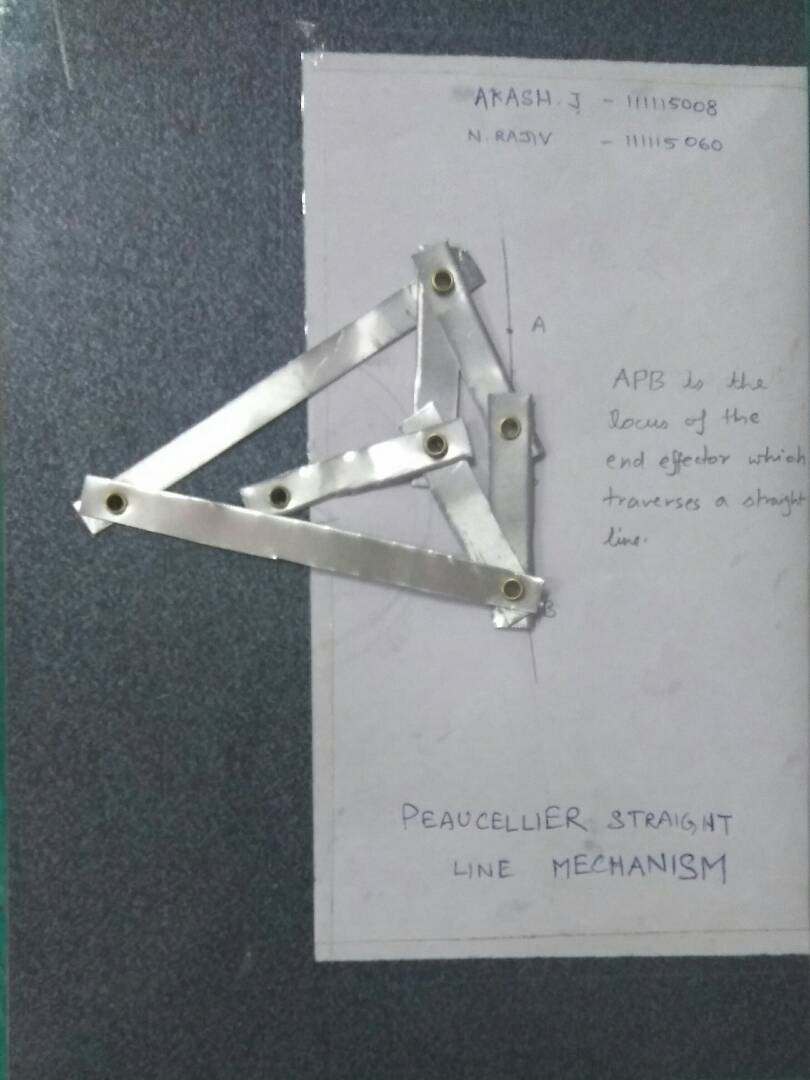 AKASH. J - 111115008
N. RAJIV - 111115060
A
APB is the
locus of the
end effector which
traverses a straight
line.
B
PEAUCELLIER STRAIGHT
LINE MECHANISM